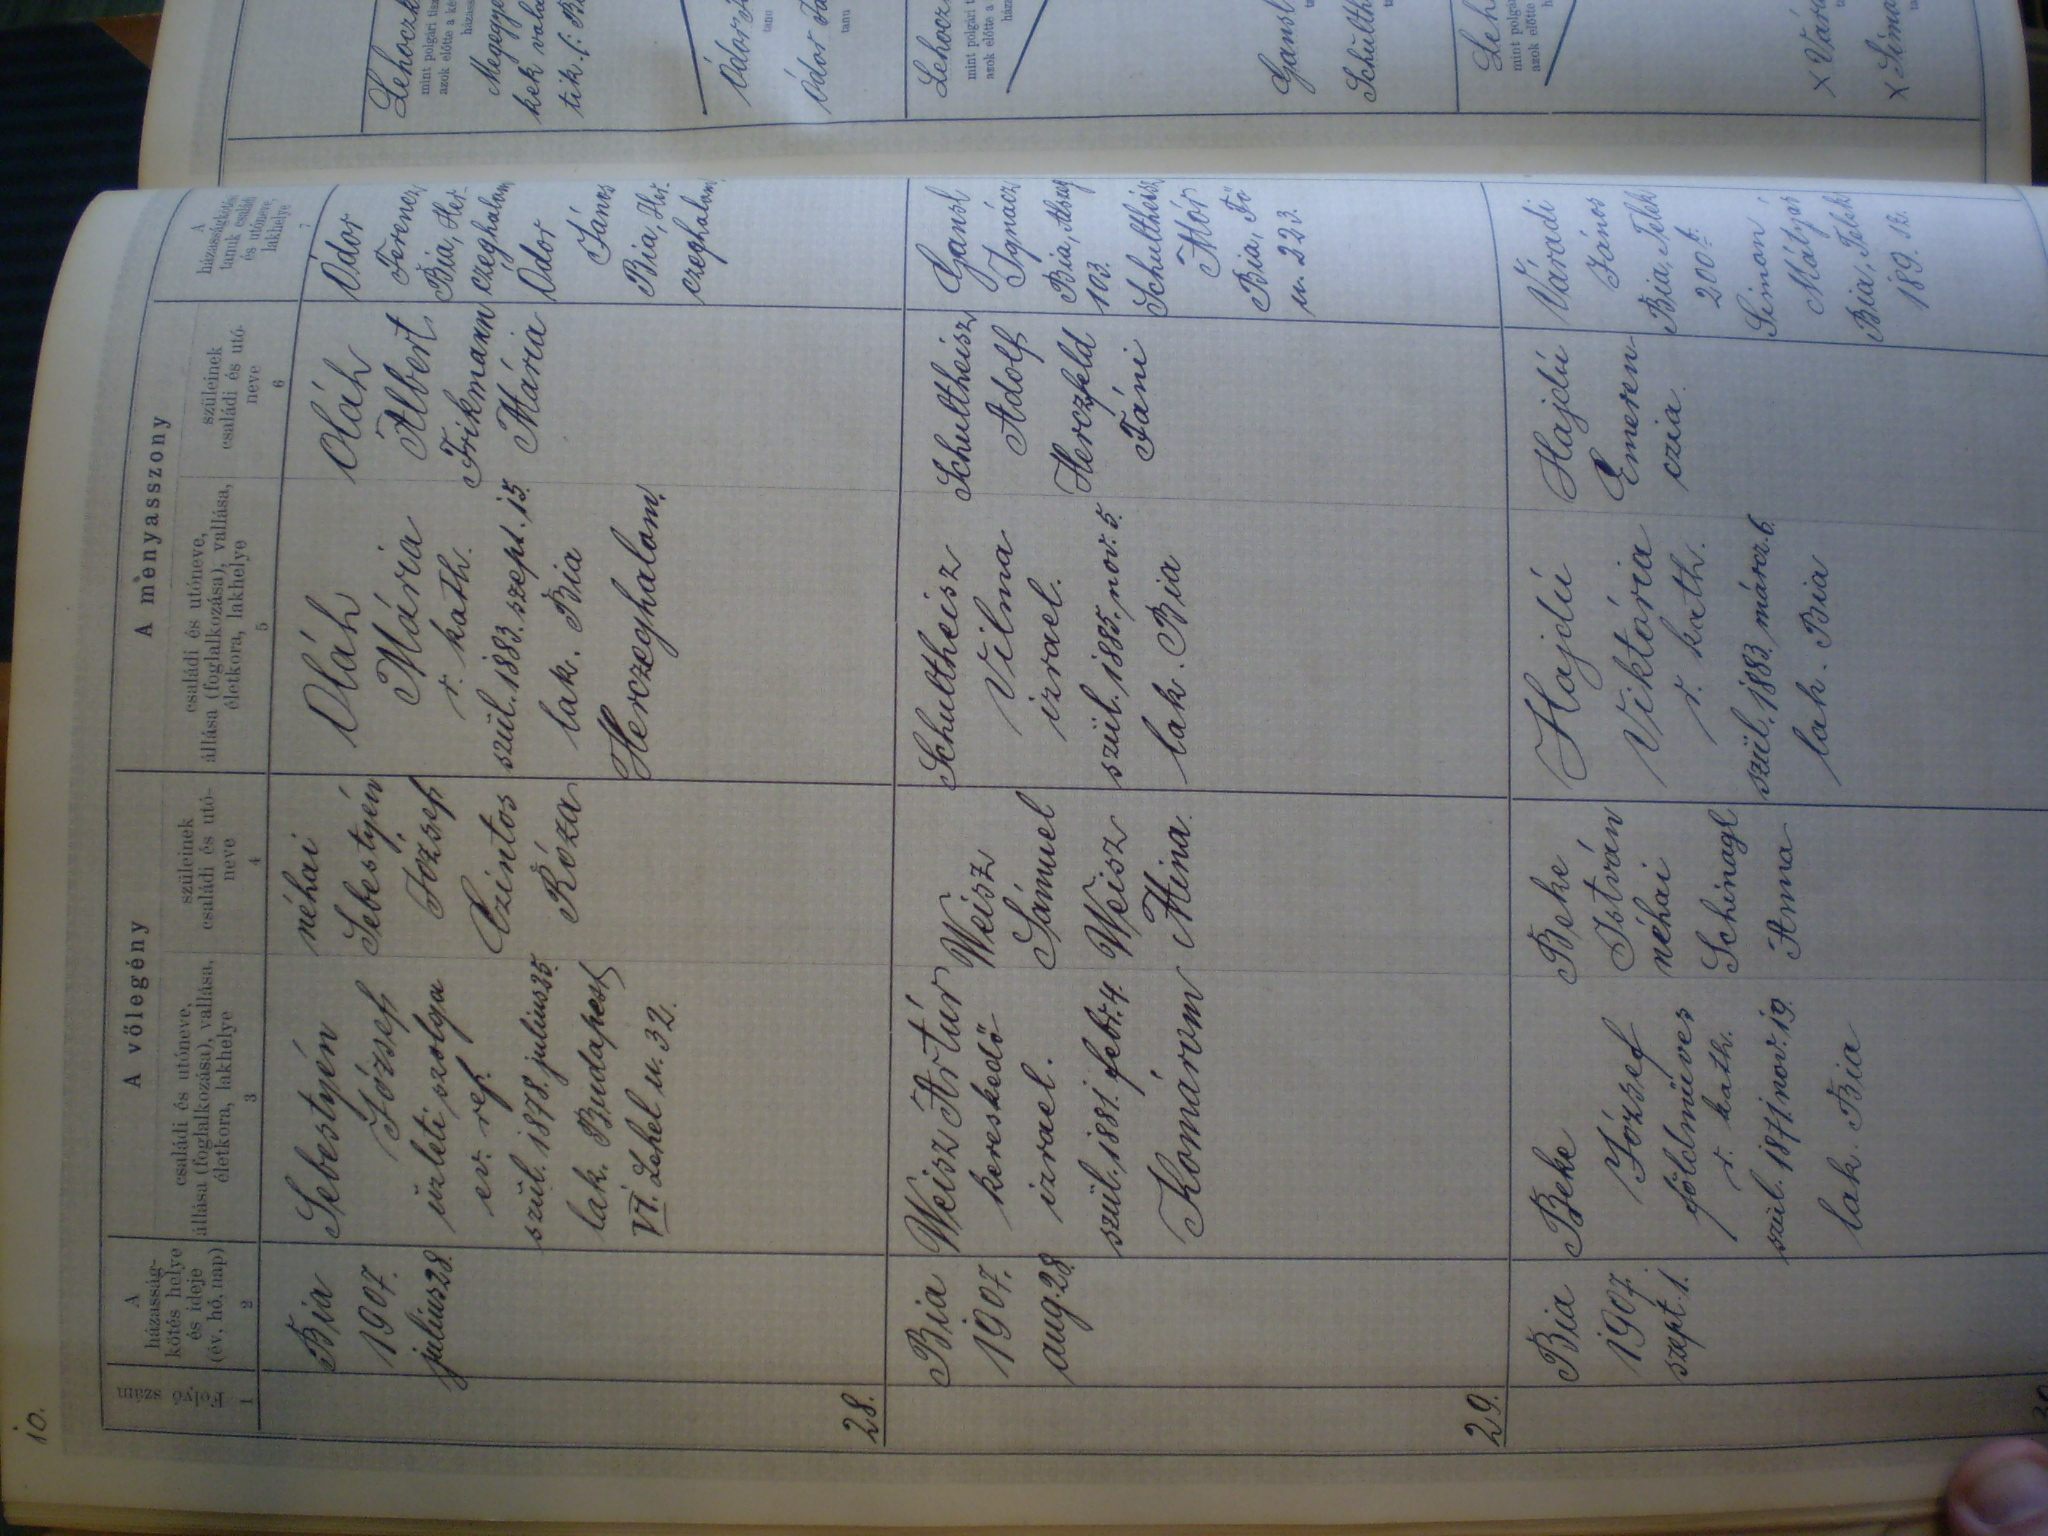 10.
Folyó szám
1
A
házasság-
kötés helye
és ideje
(év, hó, nap)
2
A vőlegény
családi és utóneve,
állása (foglalkozása), vallása,
életkora, lakhelye
3
szüleinek
családi és utó-
neve
4
A menyasszony
családi és utóneve,
állása (foglalkozása), vallása,
életkora, lakhelye
5
szüleinek
családi és utó-
neve
6
A
házasságkötés
tanuk családi
és utóneve,
lakhelye
7
Bia
1907.
julius 28.
Sebestyén
József
üzleti szolga
ev. ref.
szül. 1878. julius 25.
lak. Budapest
VI. Lehel u. 32.
néhai
Sebestyén
József
Czintos
Róza
Oláh
Mária
r. kath.
szül. 1883. szept. 15.
lak. Bia
Herczeghalom.
Oláh
Albert
Frikmann
Mária
Ódor
Ferencz
Bia, Her-
czeghalom
Ódor
János
Bia, Her-
czeghalom
28.
Bia
1907.
aug. 28.
Weisz Ártúr
kereskedő
izrael.
szül. 1881. febr. 4.
Komárom
Weisz
Sámuel
Weisz
Mina.
Schultheisz
Vilma
izrael.
szül. 1885. nov. 5.
lak. Bia
Schultheisz
Adolf
Herczfeld
Fáni
Gansl
Ignácz
Bia, Alszeg
103.
Schultheisz
Mór
Bia, Fő
u. 223.
29.
Bia
1907.
szept. 1.
Beke
József
földműves
r. kath.
szül. 1871. nov. 19.
lak. Bia
Beke
István
néhai
Schinagl
Anna
Hajdú
Viktória
r. kath.
szül. 1883. márcz. 6.
lak. Bia
Hajdú
Emeren-
czia.
Váradi
János
Bia, Telek
200.
Simon
Mátyás
Bia, Telek
189. sz.
Lehoczk
mint polgári tis
azok előtte a ké
házas
Megegye
kek vala
tik.
Ódor
tanu
Ódor
tanu
Lehocz
mint polgári t
azok előtte a
háza
Gansl
Schulth
Leh
mint polgá
azok előtt
X Vára
X Sima